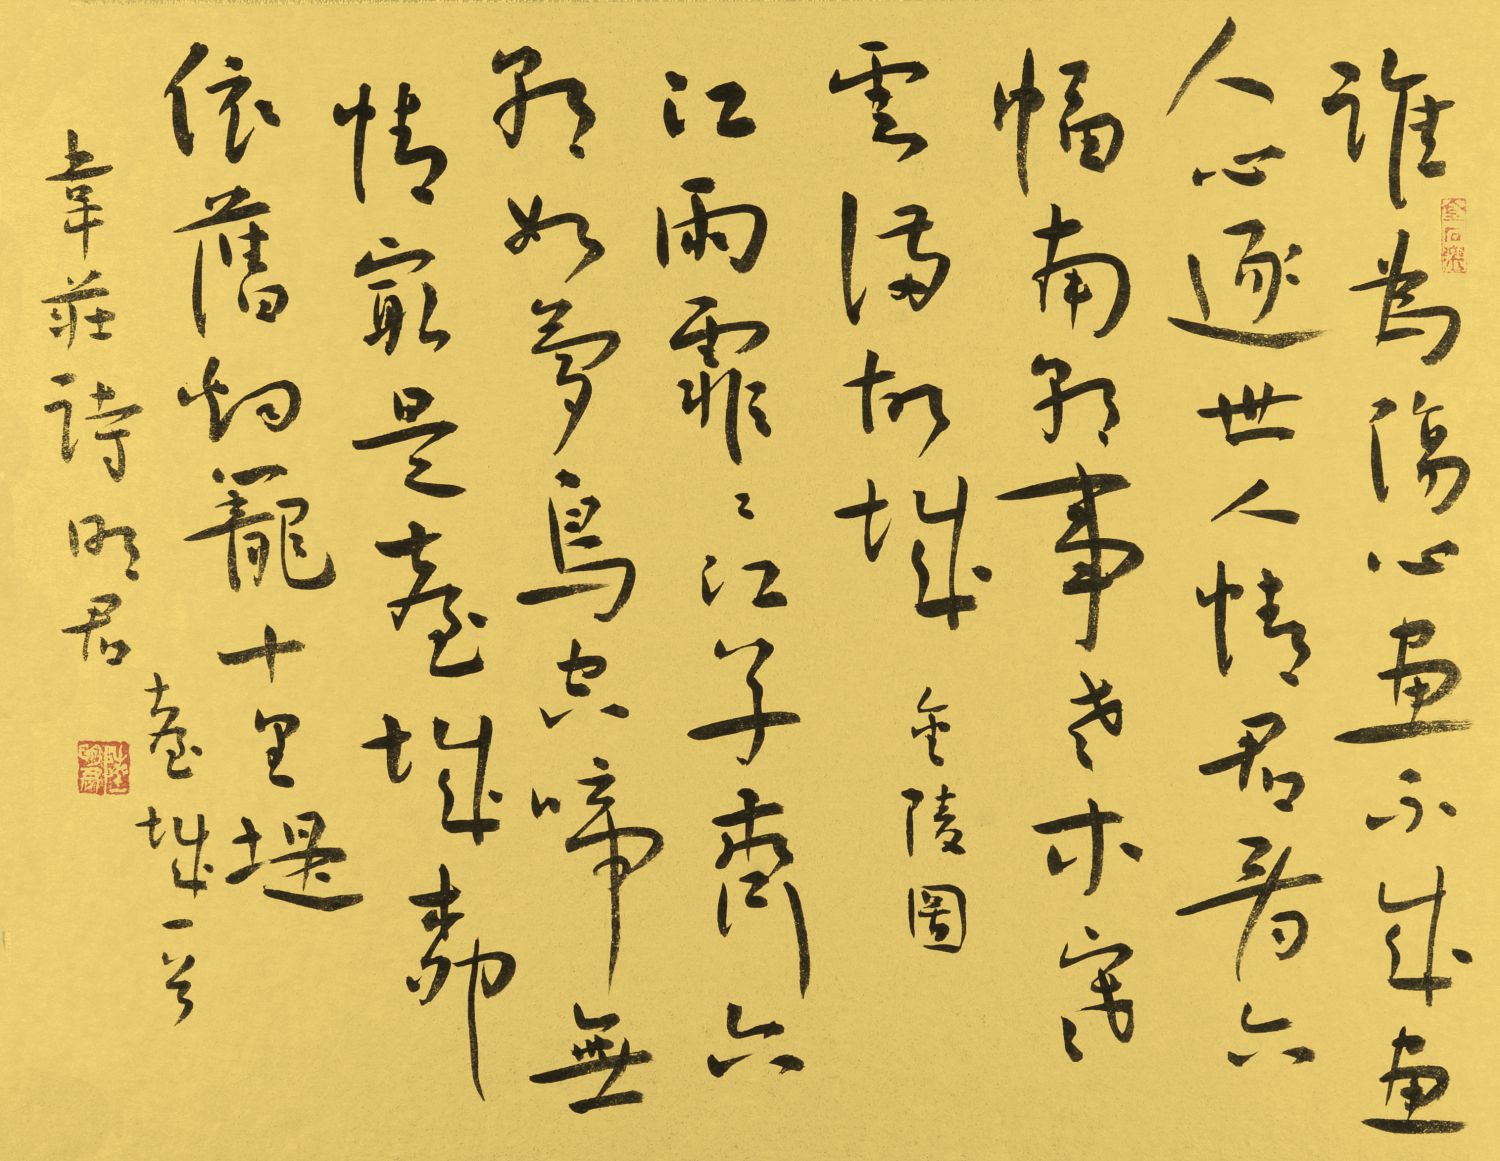 誰為傷心畫不成畫
人心逐世人情君看六
幅南朝事老木寒
雲滿故城 金陵圖
江雨霏〻江草齊六
朝如夢鳥空啼無
情最是臺城柳
依舊烟籠十里堤
臺城一首
韋莊詩明君